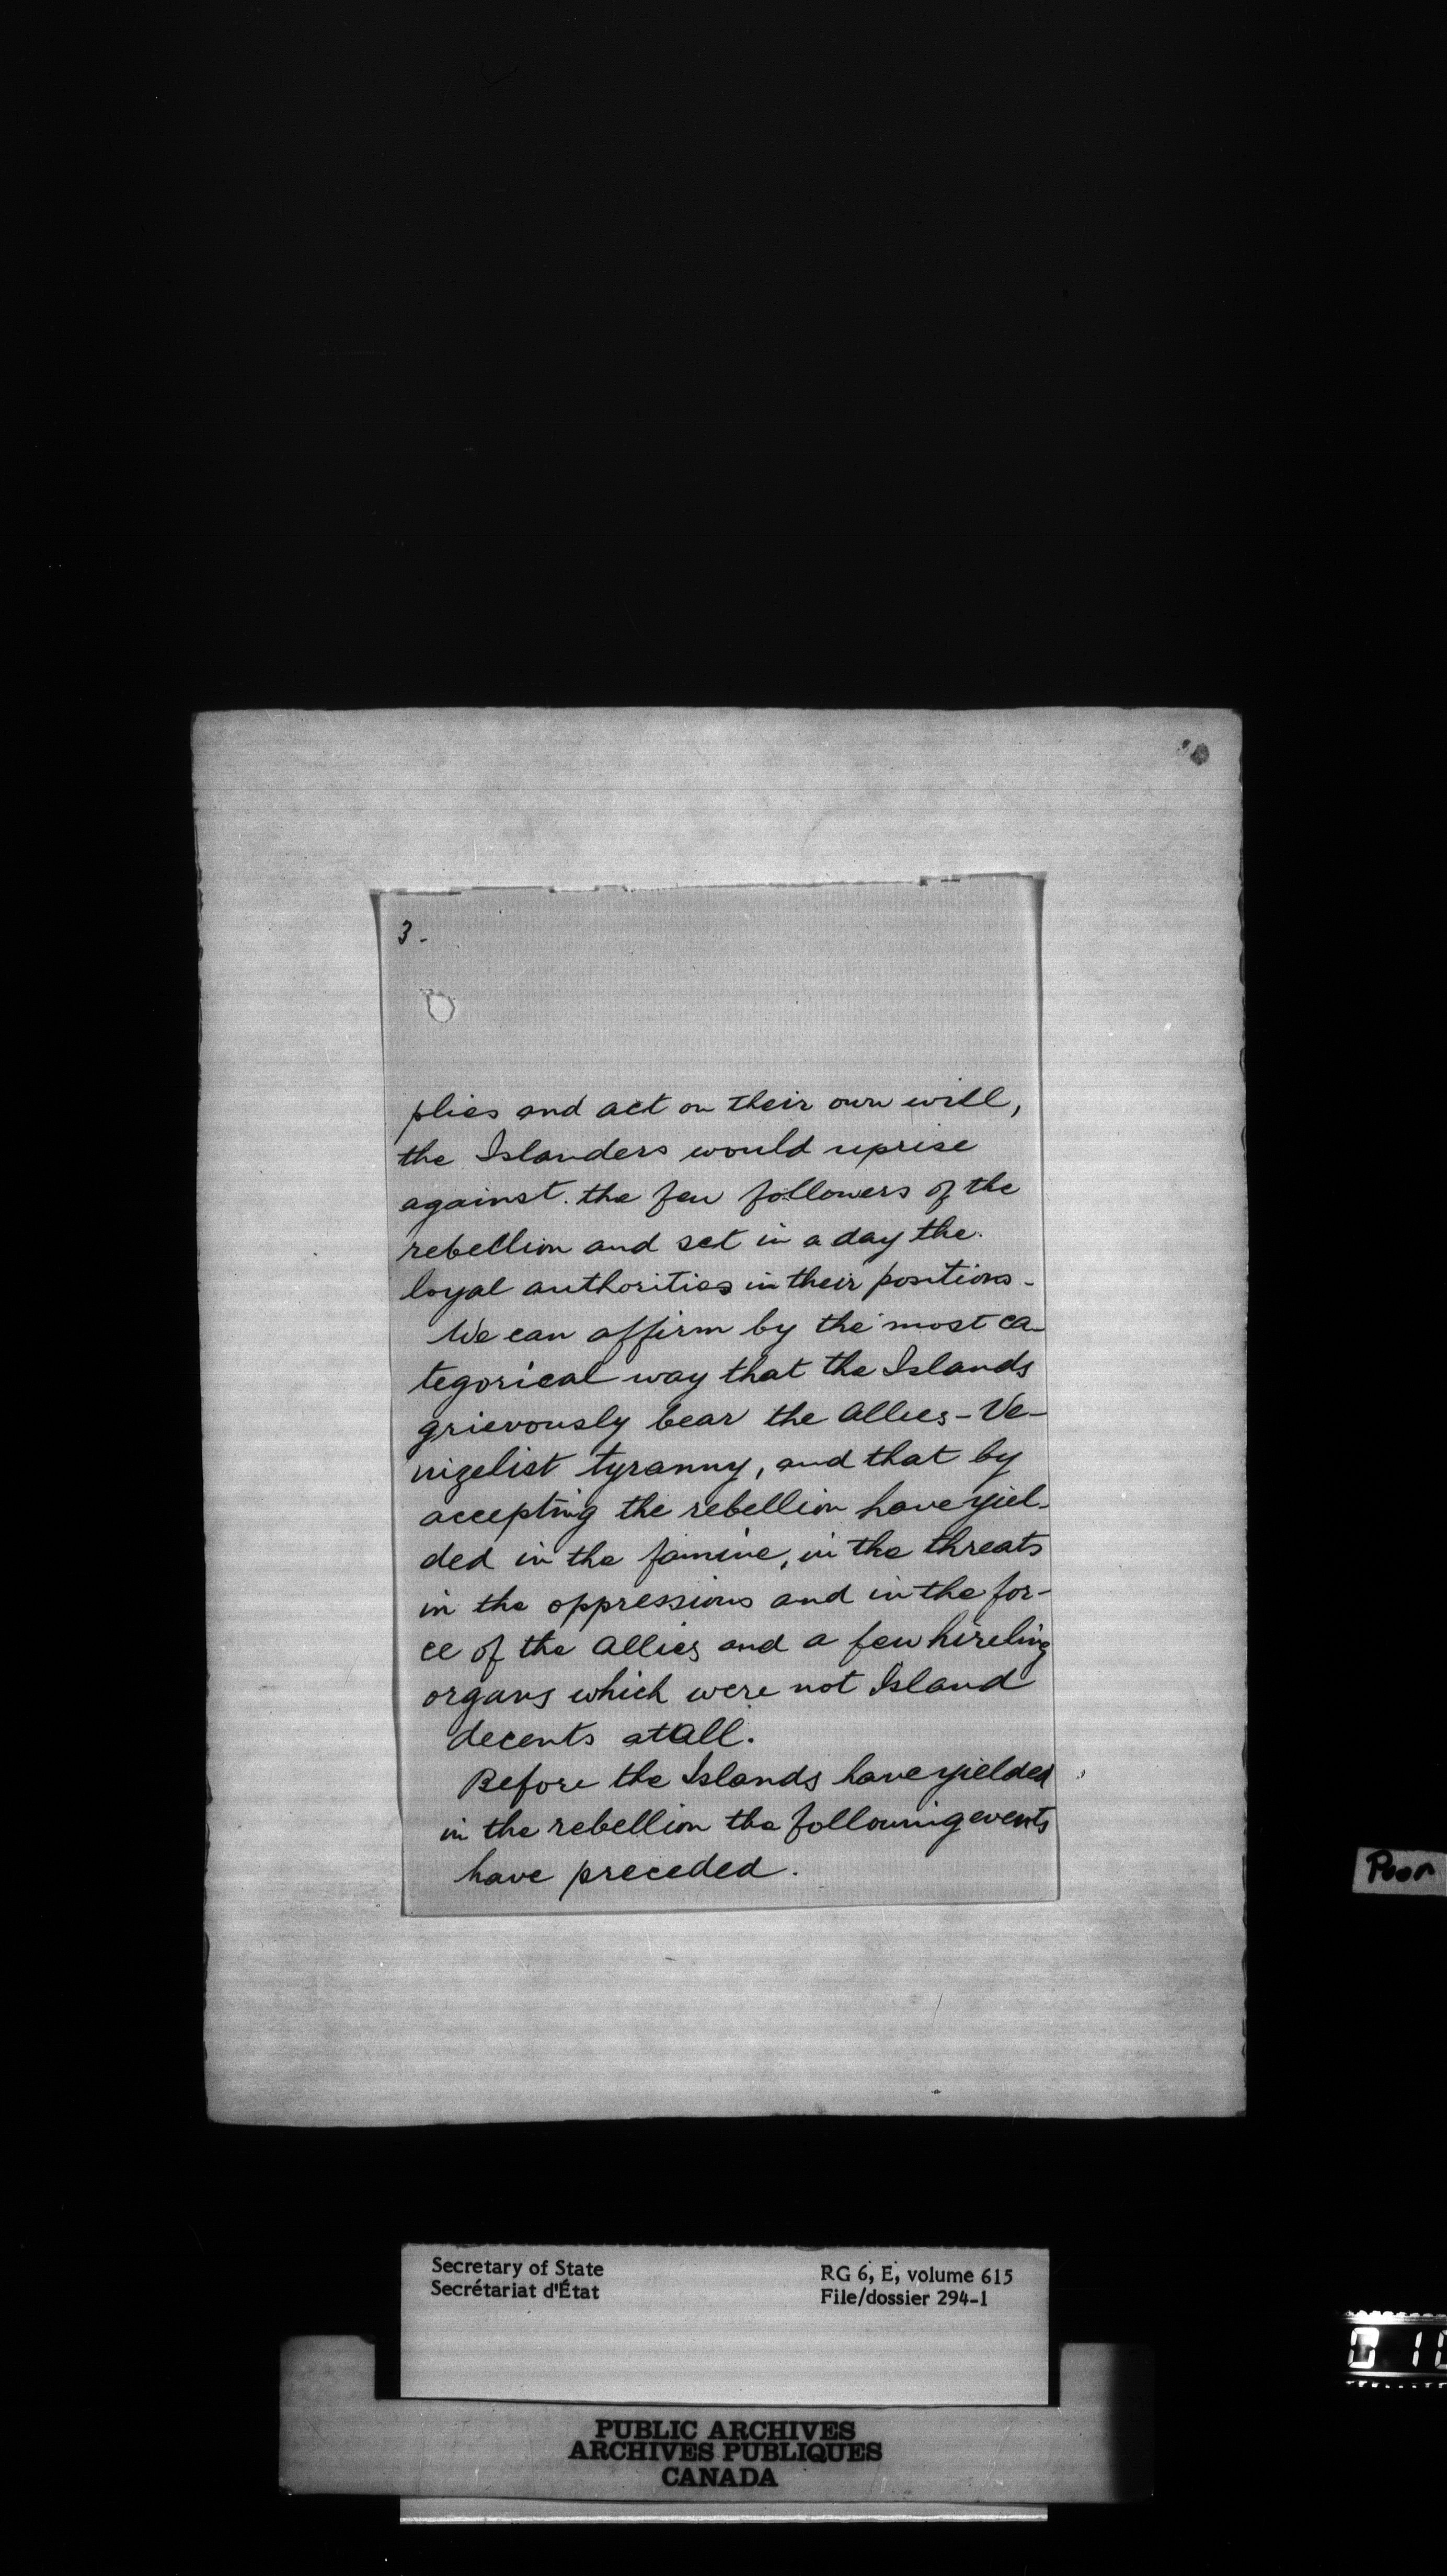 3-
plies and act on their own will,
the Islanders would uprise
against. the few followers of the
rebellion and set in a day the.
loyal authorities in their positions-
We can affirm by the most ca-
tegorical way that the Islands
grievously bear the Allies-Ve-
nizelist tyranny, and that by
accepting the rebellion have yiel-
ded in the famine, in the threats
in the oppressions and in the for-
ce of the Allies and a few hireling
organs which were not Island
decents at all.
Before the Islands have yielded
in the rebellion the following events
have preceded.
Poor
Secretary of State
Secrétariat d'État
RG 6, E, volume 615
File/dossier 294-1
PUBLIC ARCHIVES
ARCHIVES PUBLIQUES
CANADA